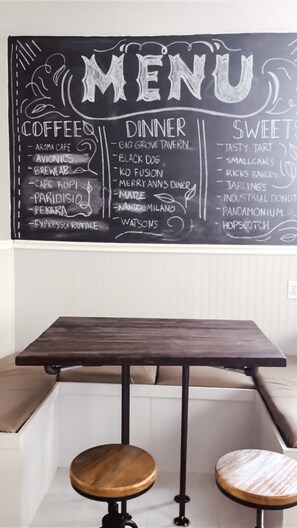 MENU
COFFEE
- AROMA CAFE
- AVIONICS
- BREWLAB
- CAFE KOPI
- PARIDISIO
- PEKARA
- EXPRESSO ROYALE
DINNER
- BIG GROVE TAVERN
- BLACK DOG
- KO FUSION
- MERRY ANN'S DINER
- MAIZE
- NANDO MILANO
- WATSONS
SWEET
- TASTY TART
- SMALLCAKES
- RICKS BAKERY
- JARLINGS
- INDUSTRIAL DONUT
- PANDAMONIUM
- HOPSCOTCH